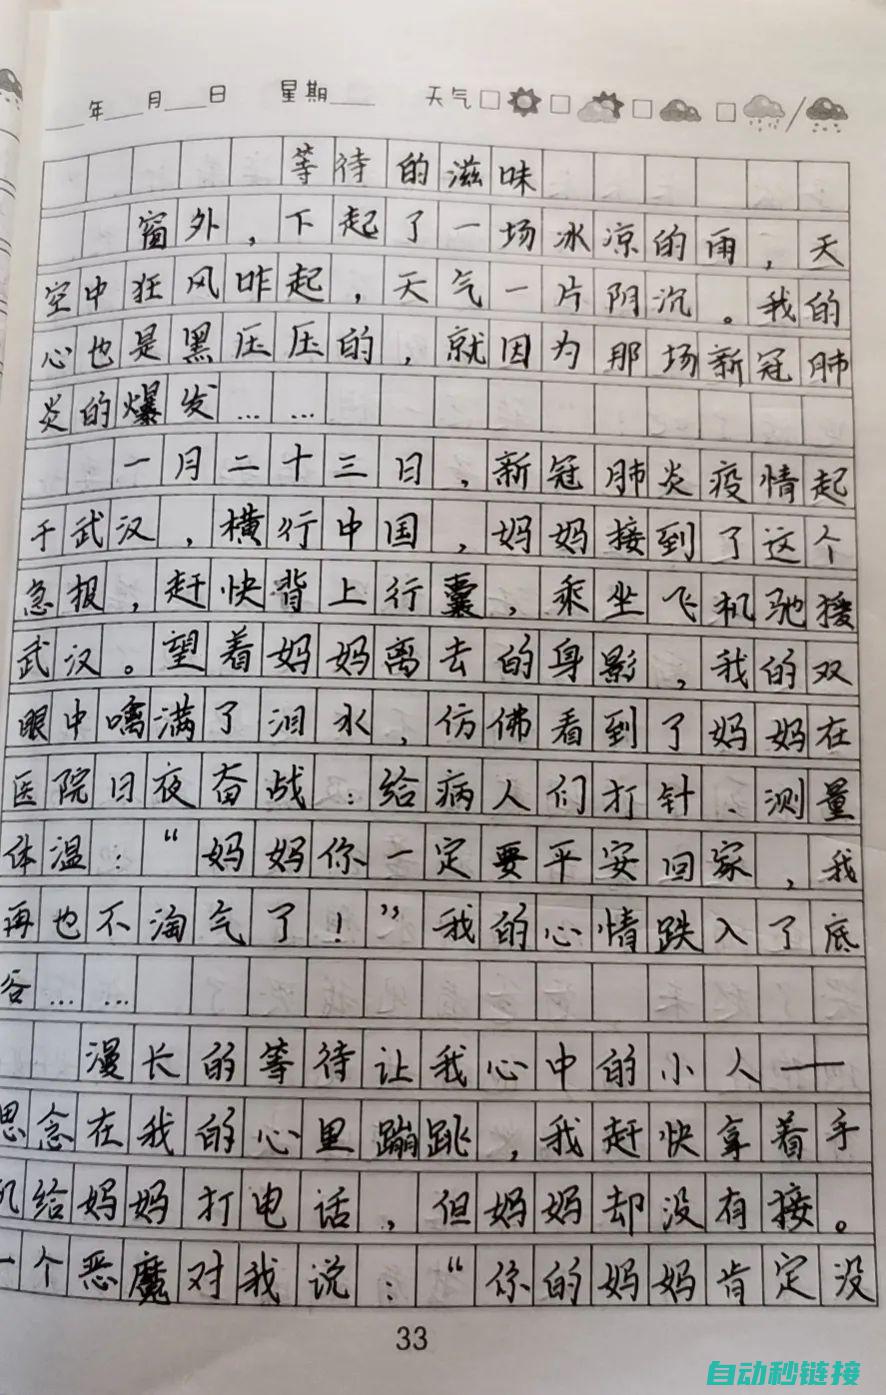 年 月 日 星期 天气
等待的滋味
窗外，下起了一场冰凉的雨，天
空中狂风咋起，天气一片阴沉。我的
心也是黑压压的，就因为那场新冠肺
炎的爆发……
一月二十三日，新冠肺炎疫情起
于武汉，横行中国，妈妈接到了这个
急报，赶快背上行囊，乘坐飞机驰援
武汉。望着妈妈离去的身影，我的双
眼中噙满了泪水，仿佛看到了妈妈在
医院日夜奋战：给病人们打针、测量
体温：“妈妈你一定要平安回家，我
再也不淘气了！”我的心情跌入了底
谷……
漫长的等待让我心中的小人——
思念在我的心里蹦跳，我赶快拿着手
机给妈妈打电话，但妈妈却没有接。
一个恶魔对我说：“你的妈妈肯定没
33
自动秒链接